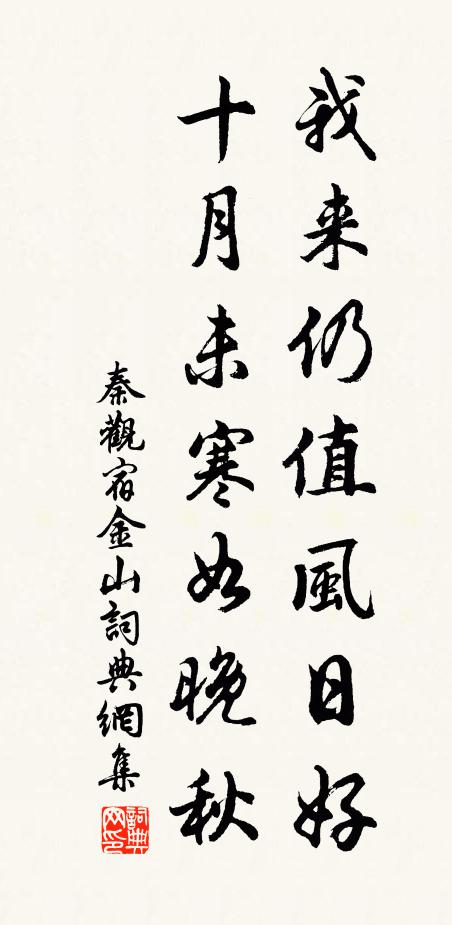 我来仍值風日好
十月未寒如晚秋
秦觀宿金山詞典網集
詞典网印